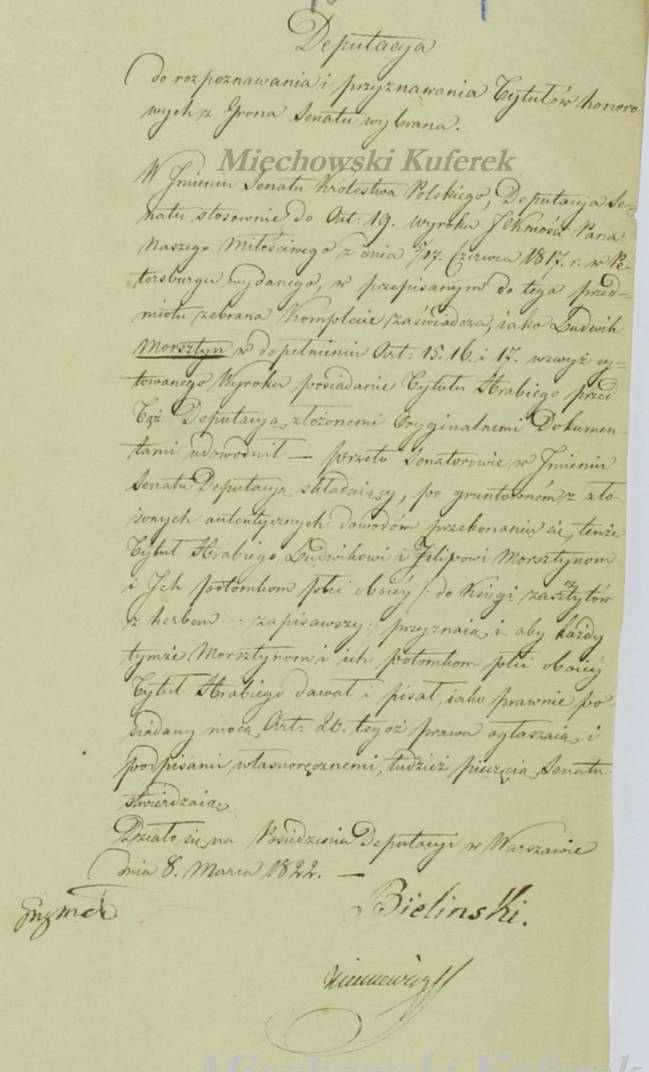 Deputacja
do rozpoznawania i przyznawania Tytułów honoro
wych z Grona Senatu wybrana.
Miechowski Kuferek
W Imieniu Senatu Królestwa Polskiego, Deputacja Se-
natu stosownie do Art: 19. wyroku JKMości Pana
Naszego Miłościwego z dnia 17. Czerwca 1817. r. w Pe-
tersburgu wydanego, w przepisanym do tego przed-
miotu zebrana Komplecie zaświadcza, iako Ludwik
Morsztyn w dopełnieniu Art: 15. 16. i 17. wzwyż cy-
towanego Wyroku posiadanie Tytułu Hrabiego przed
Tąż Deputacyą złożonemi Oryginalnemi Dokumen-
tami udowodnił — przeto Senatorowie w Imieniu
Senatu Deputacyą składaiący, po gruntownem z zło-
żonych autentycznych dowodów przekonaniu się, tenże
Tytuł Hrabiego Ludwikowi i Filipowi Morsztynom
i Ich potomkom płci obojéy /: do Księgi zaszczytów
z herbem ... zapisawszy :/ przyznaią i aby każdy
tymże Morsztynom i ich potomkom płci obojéy
Tytuł Hrabiego dawał i pisał, iako prawnie po
siadany mocą Art: 26. tegoż prawa ogłaszaią i
podpisami własnoręcznemi, tudzież pieczęcią Senatu
stwierdzaią,
Działo się na Posiedzeniu Deputacyi w Warszawie
dnia 8. Marca 1822. —
Bielinski.
Niemcewicz
Miechowski Kuferek